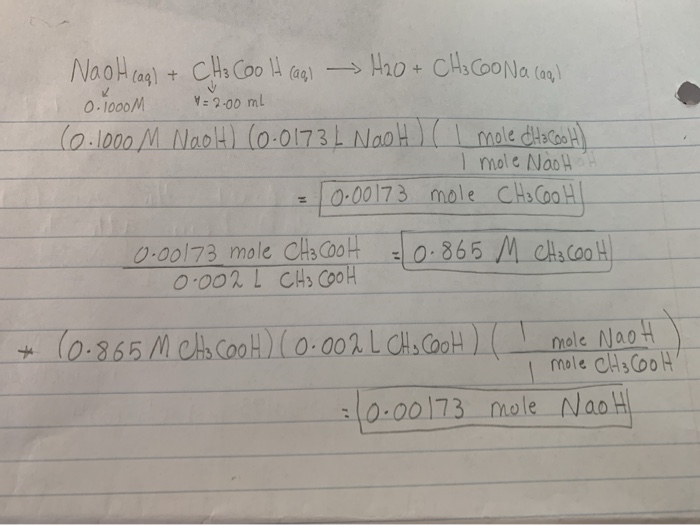 NaOH (aq) + CH3COOH (aq) → H2O + CH3COONa (aq)
0.1000M V = 2.00 mL
(0.1000 M NaOH) (0.0173 L NaOH) ( 1 mole CH3COOH )
1 mole NaOH
= 0.00173 mole CH3COOH
0.00173 mole CH3COOH = 0.865 M CH3COOH
0.002 L CH3COOH
* (0.865 M CH3COOH) (0.002 L CH3COOH) ( 1 mole NaOH )
1 mole CH3COOH
= 0.00173 mole NaOH